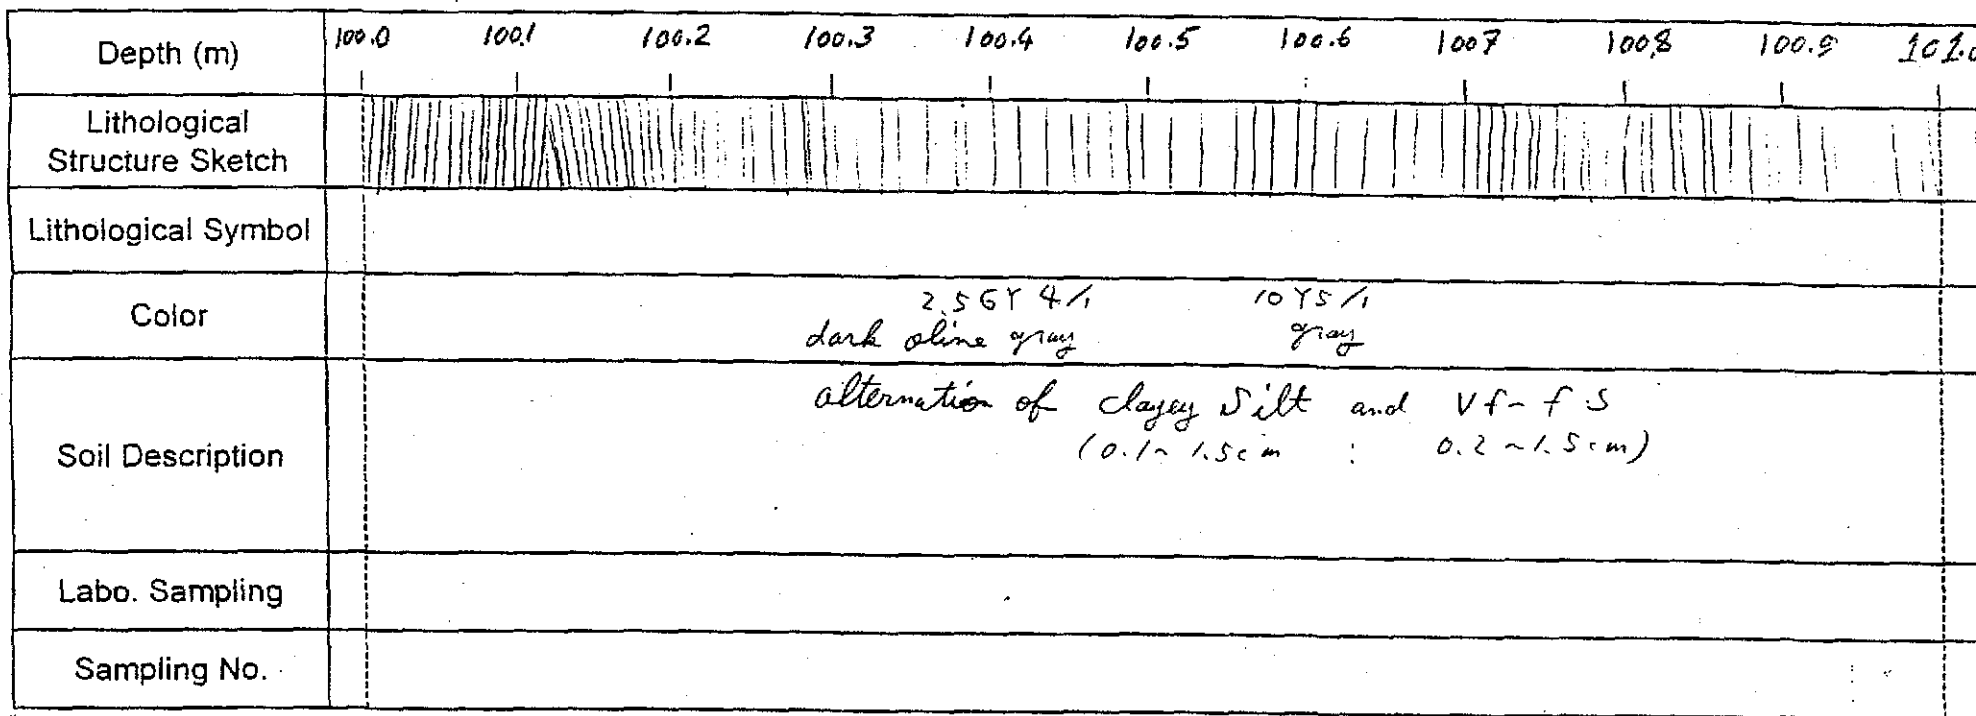 Depth (m) 100.0 100.1 100.2 100.3 100.4 100.5 100.6 100.7 100.8 100.9 101.0
Lithological
Structure Sketch
Lithological Symbol
Color
2.5GY 4/1 10Y5/1
dark oline gray gray
Soil Description
alternation of clayey Silt and Vf~fS
(0.1~1.5cm : 0.2~1.5cm)
Labo. Sampling
Sampling No.